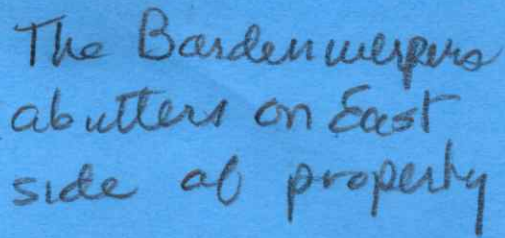 The Bardenwerpers
abutters on East
side of property